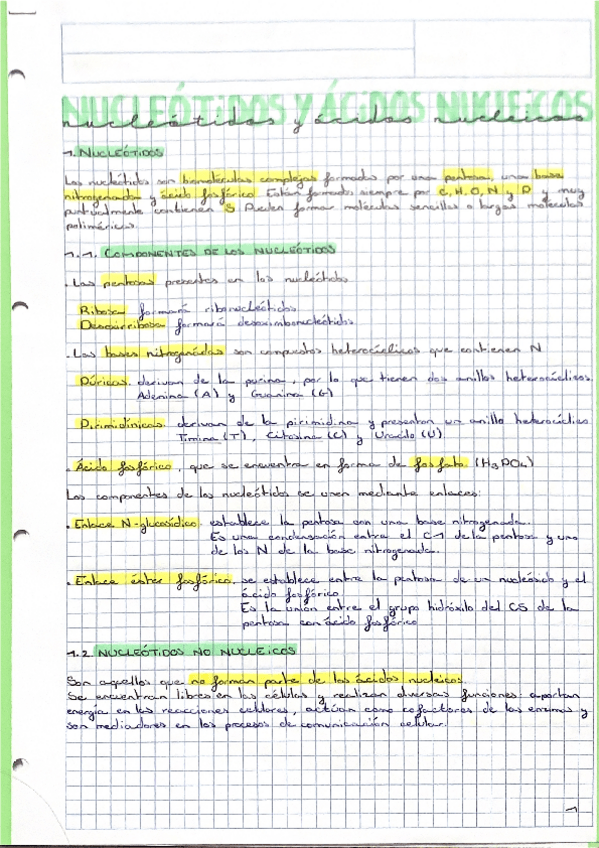 NUCLEÓTIDOS Y ÁCIDOS NUCLEICOS
nucleótidos y ácidos nucleicos
1. NUCLEÓTIDOS
Los nucleótidos son biomoléculas complejas formadas por una pentosa, una base
nitrogenada y ácido fosfórico. Están formados siempre por C, H, O, N y P y muy
puntualmente contienen S. Pueden formar moléculas sencillas o largas moléculas
poliméricas.
1.1. COMPONENTES DE LOS NUCLEÓTIDOS
. Las pentosas presentes en los nucleótidos
Ribosa formará ribonucleótidos
Desoxirribosa formará desoxirribonucleótidos
. Las bases nitrogenadas son compuestos heterocíclicos que contienen N
Púricas. derivan de la purina, por lo que tienen dos anillos heterocíclicos.
Adenina (A) y Guanina (G)
Pirimidínicas. derivan de la pirimidina y presentan un anillo heterocíclico
Timina (T), Citosina (C) y Uracilo (U).
. Ácido fosfórico, que se encuentra en forma de fosfato. (H3PO4)
Los componentes de los nucleótidos se unen mediante enlaces:
. Enlace N-glucosídico. establece la pentosa con una base nitrogenada.
Es una condensación entre el C-1 de la pentosa y uno
de los N de la base nitrogenada.
. Enlace éster fosfórico. se establece entre la pentosa de un nucleósido y el
ácido fosfórico
Es la unión entre el grupo hidróxilo del C5 de la
pentosa con ácido fosfórico
1.2 NUCLEÓTIDOS NO NUCLEICOS
Son aquellos que no forman parte de los ácidos nucleicos.
Se encuentran libres en las células y realizan diversas funciones: aportan
energía en las reacciones celulares, actúan como cofactores de las enzimas y
son mediadores en los procesos de comunicación celular.
1